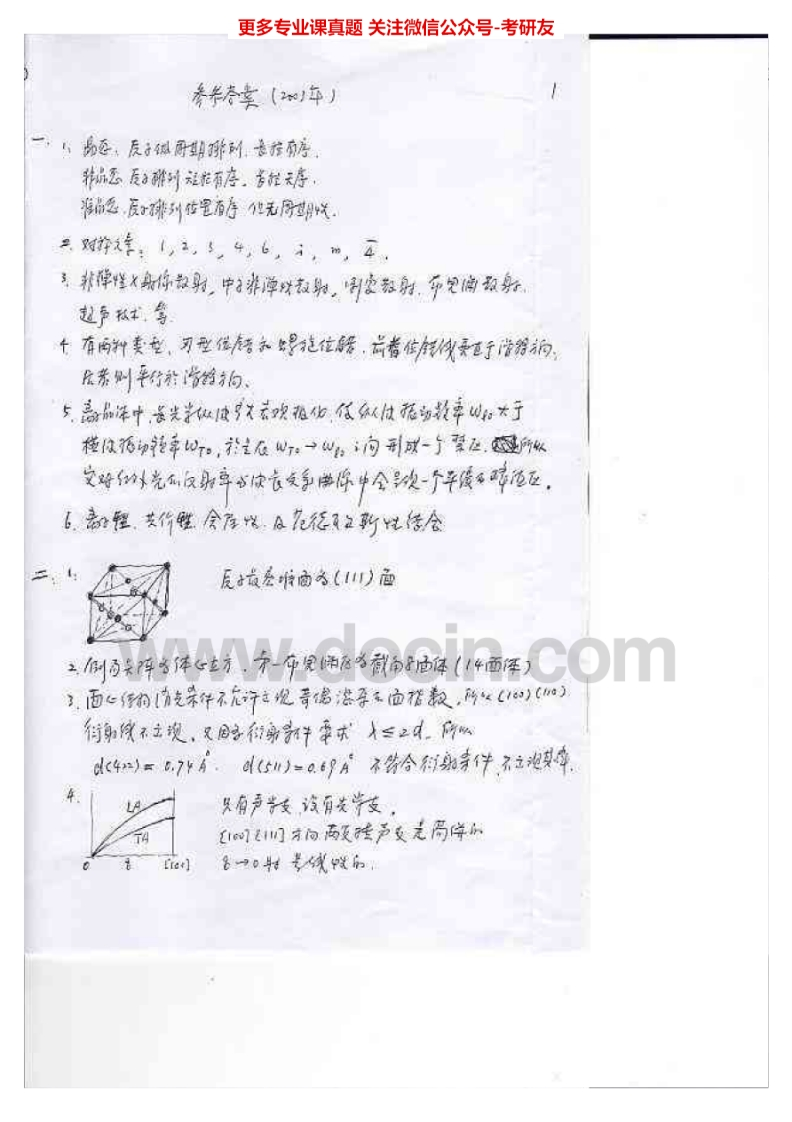 更多专业课真题 关注微信公众号-考研友
参考答案（2001年） 1
一、1、晶态、原子做周期排列、长程有序．
非晶态 原子排列短程有序、长程无序．
准晶态、原子排列位置有序 但无周期性．
2. 对称元素：1，2，3，4，6，i，m，4̅．
3. 非弹性X射线散射，中子非弹性散射，喇曼散射、布里渊散射．
超声技术、等
4. 有两种类型、刃型位错和螺旋位错．前者位错线垂直于滑移方向；
后者则平行於滑移方向．
5. 离子晶体中，长光学纵波引起宏观极化，使纵波振动频率ωLO大于
横波振动频率ωTO，於是在ωTO→ωLO之间形成一个禁区．所以
它对红外光的反射率与波长关系曲线中会呈现一个平缓的峰值区．
6. 离子性、共价性、金属性、及范德瓦斯性结合
二、1．原子最密堆面为(111)面
www.docin.com
2. 倒易点阵为体心立方、第一布里渊区为截角8面体(14面体)
3. 面心结构消光条件不允许出现奇偶混杂的面指数，所以(100)(110)
衍射线不出现，又因为衍射条件要求 λ≤2d．所以
d(422)=0.74Å． d(511)=0.69Å 不符合衍射条件，不出现其峰．
4. LA 只有声学支，没有光学支．
TA [100][111]方向两支横声支是简併的
0 q [101] q→0时 是线性的．